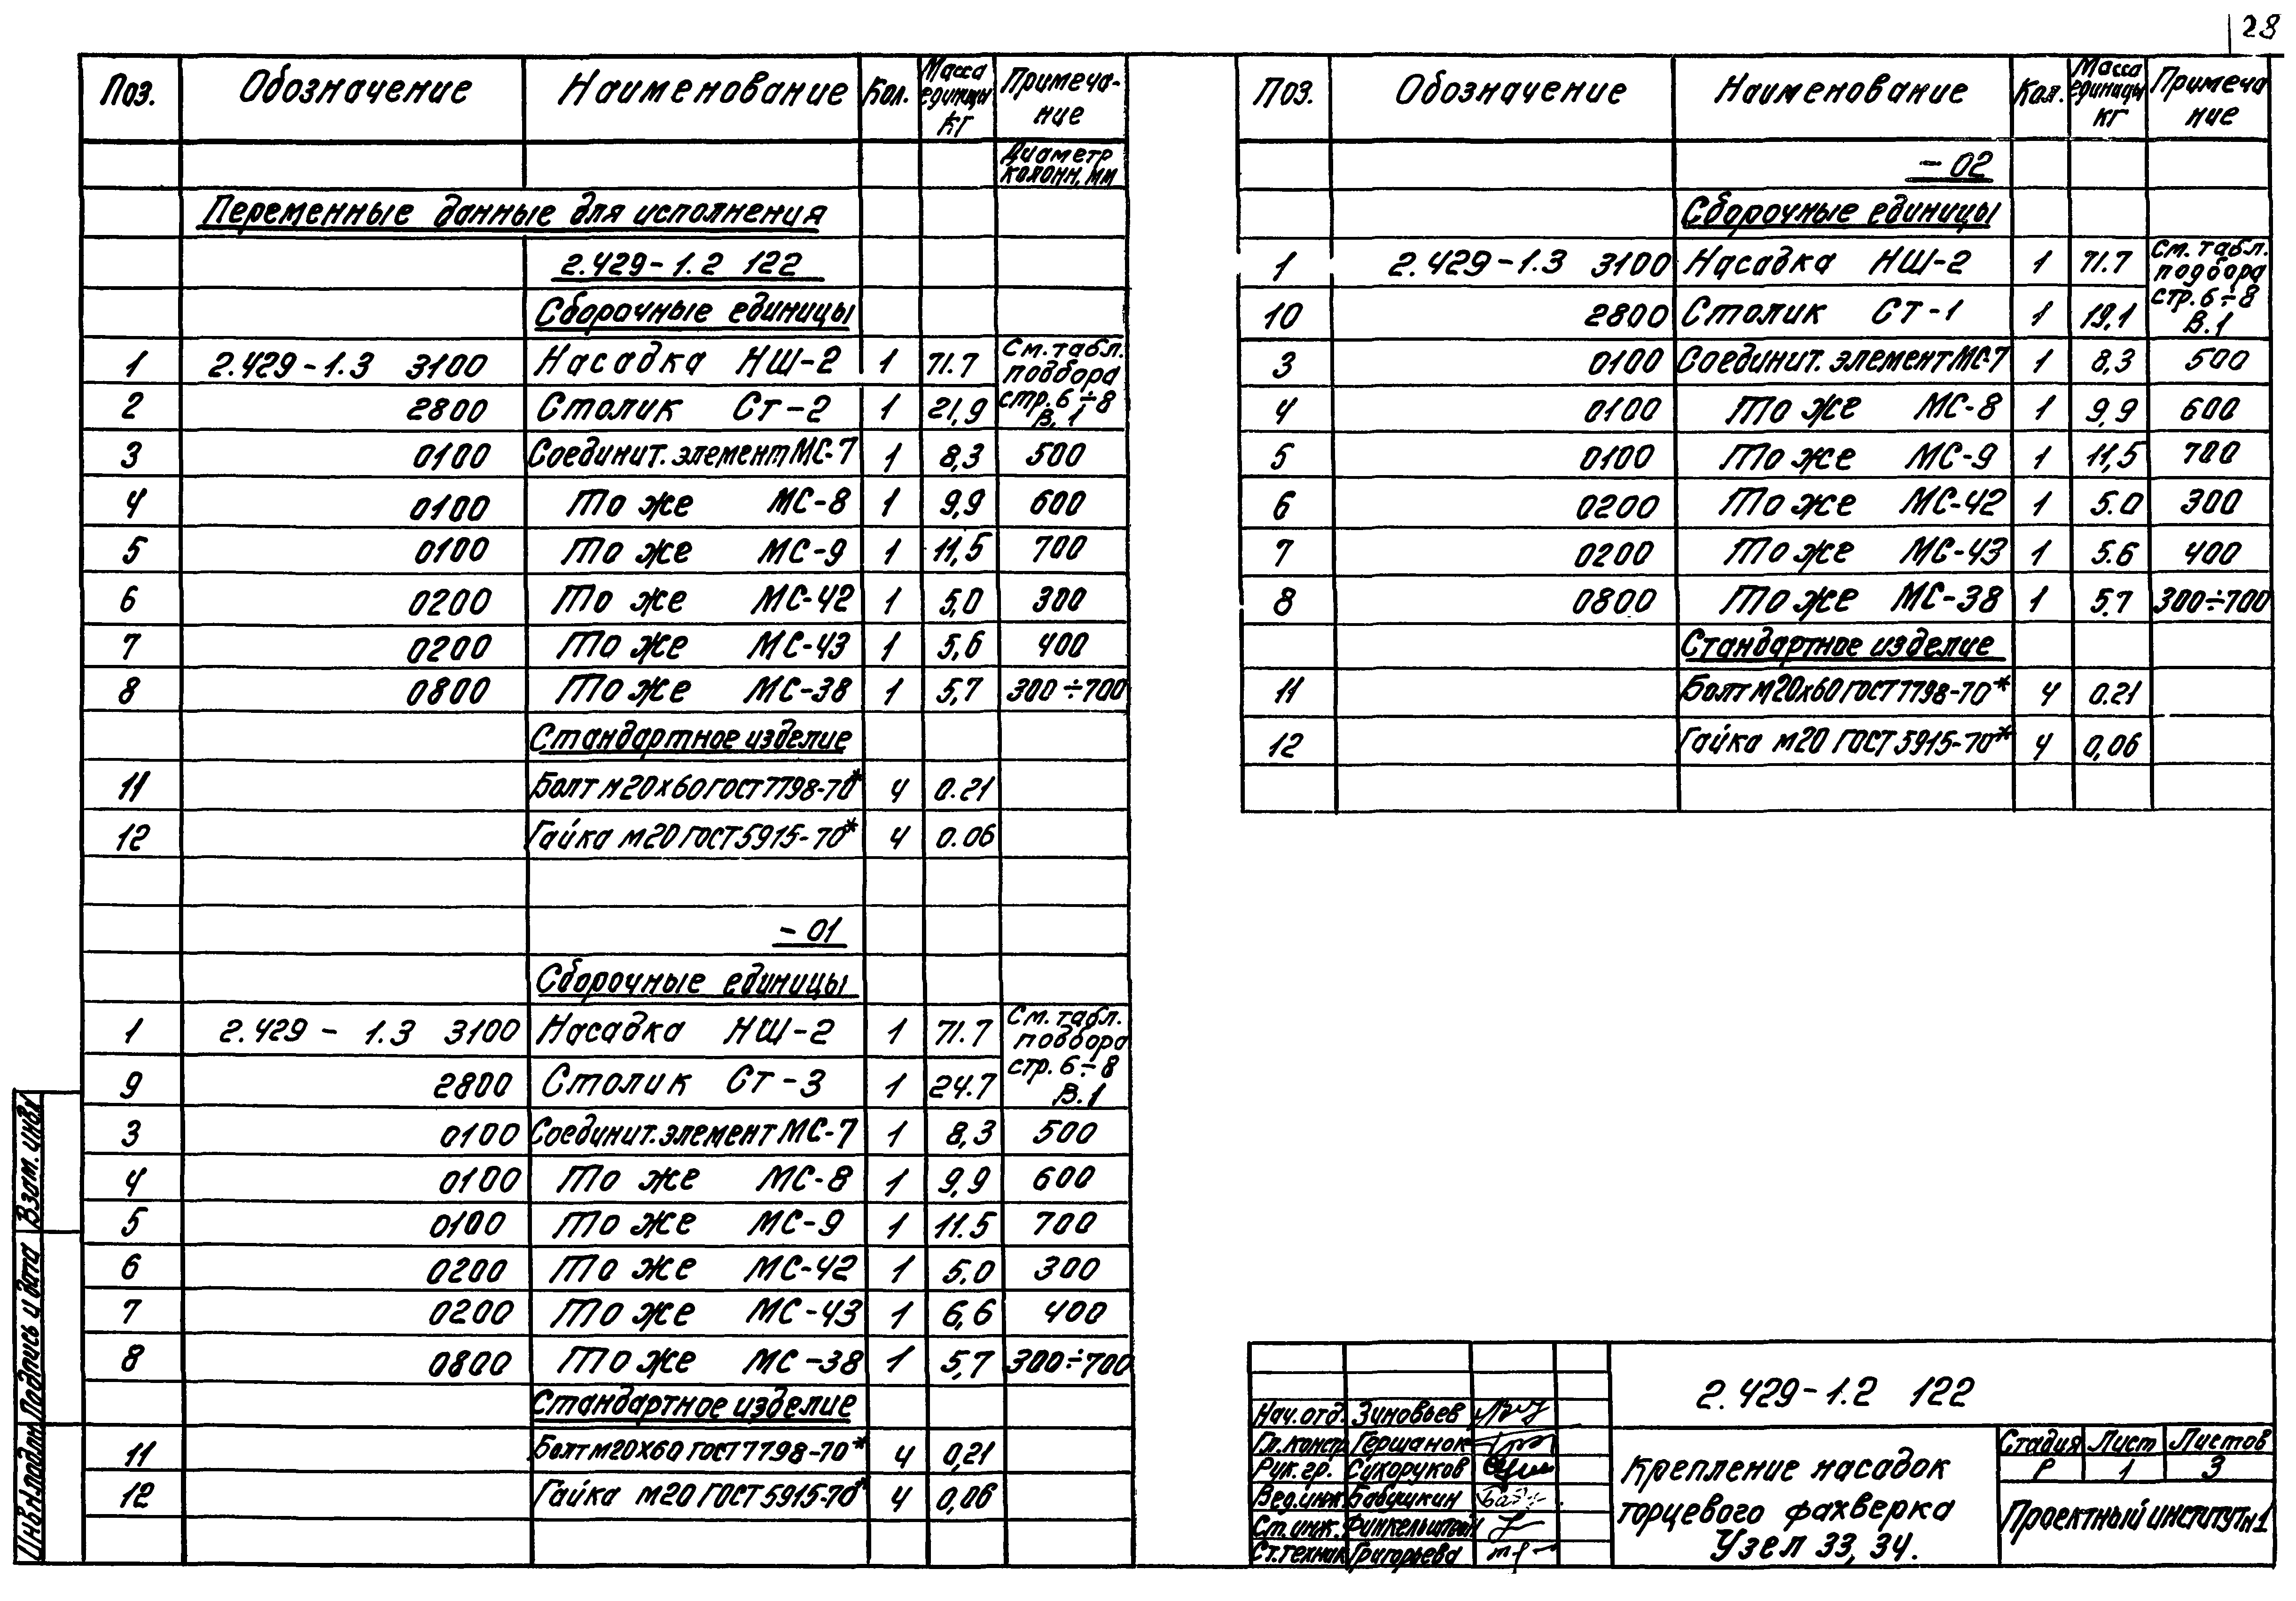 28
Поз. Обозначение Наименование Кол. Масса единицы кг Примеча-ние
Диаметр колонн, мм
Переменные данные для исполнения
2.429-1.2 122
Сборочные единицы
1 2.429-1.3 3100 Насадка НШ-2 1 71.7 См. табл. подбора
2 2800 Столик Ст-2 1 21,9 стр. 6÷8 В.1
3 0100 Соединит. элемент МС-7 1 8,3 500
4 0100 То же МС-8 1 9,9 600
5 0100 То же МС-9 1 11,5 700
6 0200 То же МС-42 1 5,0 300
7 0200 То же МС-43 1 5,6 400
8 0800 То же МС-38 1 5,7 300÷700
Стандартное изделие
11 Болт м20х60 ГОСТ 7798-70* 4 0.21
12 Гайка м20 ГОСТ 5915-70* 4 0.06
- 01
Сборочные единицы
1 2.429 - 1.3 3100 Насадка НШ-2 1 71.7 См. табл. подбора
9 2800 Столик Ст-3 1 24.7 стр. 6÷8 В.1
3 0100 Соединит. элемент МС-7 1 8,3 500
4 0100 То же МС-8 1 9,9 600
5 0100 То же МС-9 1 11.5 700
6 0200 То же МС-42 1 5,0 300
7 0200 То же МС-43 1 6,6 400
8 0800 То же МС-38 1 5,7 300÷700
Стандартное изделие
11 Болт м20х60 ГОСТ 7798-70* 4 0,21
12 Гайка м20 ГОСТ 5915-70* 4 0,06
Поз. Обозначение Наименование Кол. Масса единицы кг Примеча ние
- 02
Сборочные единицы
1 2.429-1.3 3100 Насадка НШ-2 1 71.7 См. табл. подбора
10 2800 Столик Ст-1 1 19,1 стр. 6÷8 В.1
3 0100 Соединит. элемент МС-7 1 8,3 500
4 0100 То же МС-8 1 9,9 600
5 0100 То же МС-9 1 11,5 700
6 0200 То же МС-42 1 5.0 300
7 0200 То же МС-43 1 5.6 400
8 0800 То же МС-38 1 5.7 300÷700
Стандартное изделие
11 Болт м20х60 ГОСТ 7798-70* 4 0.21
12 Гайка м20 ГОСТ 5915-70* 4 0,06
Инв.N.подлн. Подпись и дата Взам. инв.N
2.429-1.2 122
Нач. отд. Зиновьев
Гл. констр. Гершанок
Рук. гр. Сухоруков
Вед. инж. Бабушкин
Ст. инж. Финкельштейн
Ст. техник Григорьева
Крепление насадок
торцевого фахверка
Узел 33, 34.
Стадия Лист Листов
Р 1 3
Проектный институт N1